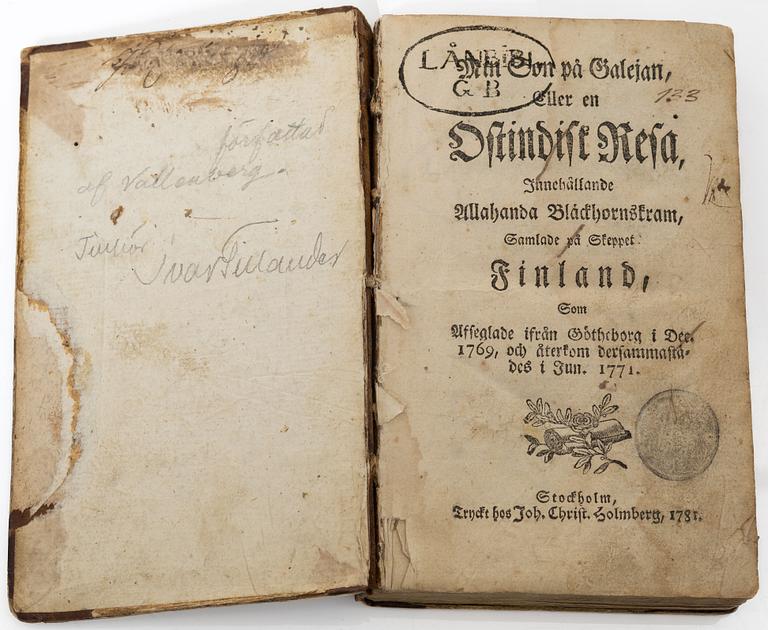 författad
af Vallenberg.
Tillhör
Ivar Tillander
LÅNBIBL
G B
Min Son på Galejan,
Eller en
133
Ostindisk Resa,
Innehållande
Allahanda Bläckhornskram,
Samlade på Skeppet
Finland,
Som
Afseglade ifrån Götheborg i Dec.
1769, och återkom dersammastä-
des i Jun. 1771.
Stockholm,
Tryckt hos Joh. Christ. Holmberg, 1781.